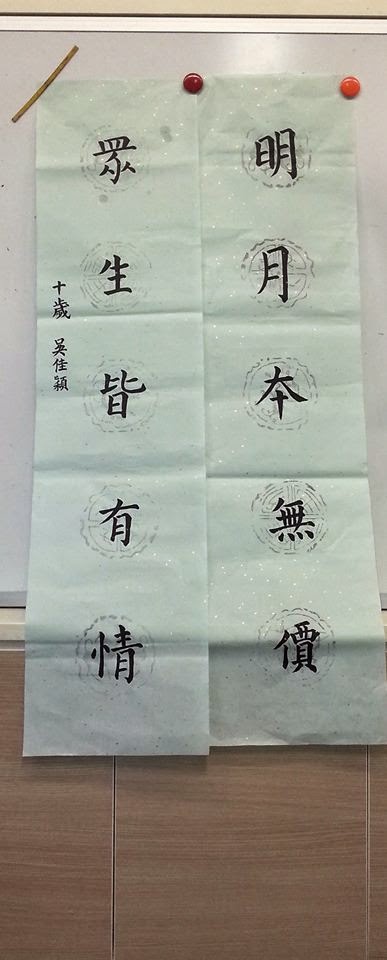 明月本無價
眾生皆有情
十歲 吳佳穎